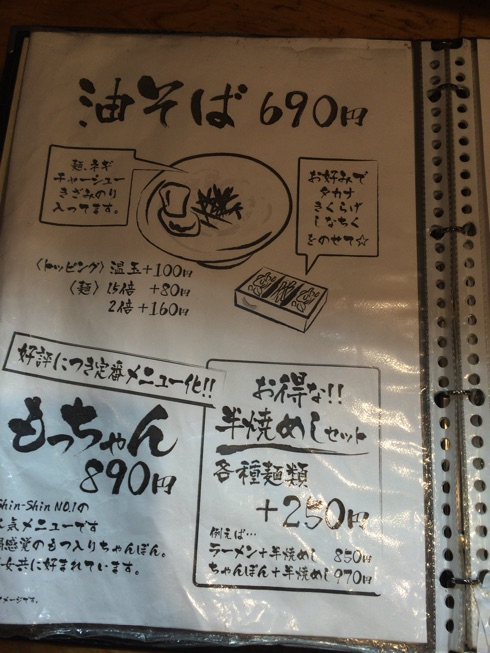 油そば 690円
麺、ネギ
チャーシュー
きざみのり
入ってます。
お好みで
タカナ
きくらげ
しなちく
をのせて☆
〈トッピング〉温玉+100円
〈麺〉1.5倍 +80円
2倍+160円
好評につき定番メニュー化!!
もつちゃん
890円
Shin-Shin NO.1の
人気メニューです
感覚のもつ入りちゃんぽん。
女共に好まれています。
イメージです。
お得な!!
半焼めしセット
各種麺類
+250円
例えば…
ラーメン+半焼めし 850円
ちゃんぽん+半焼めし970円